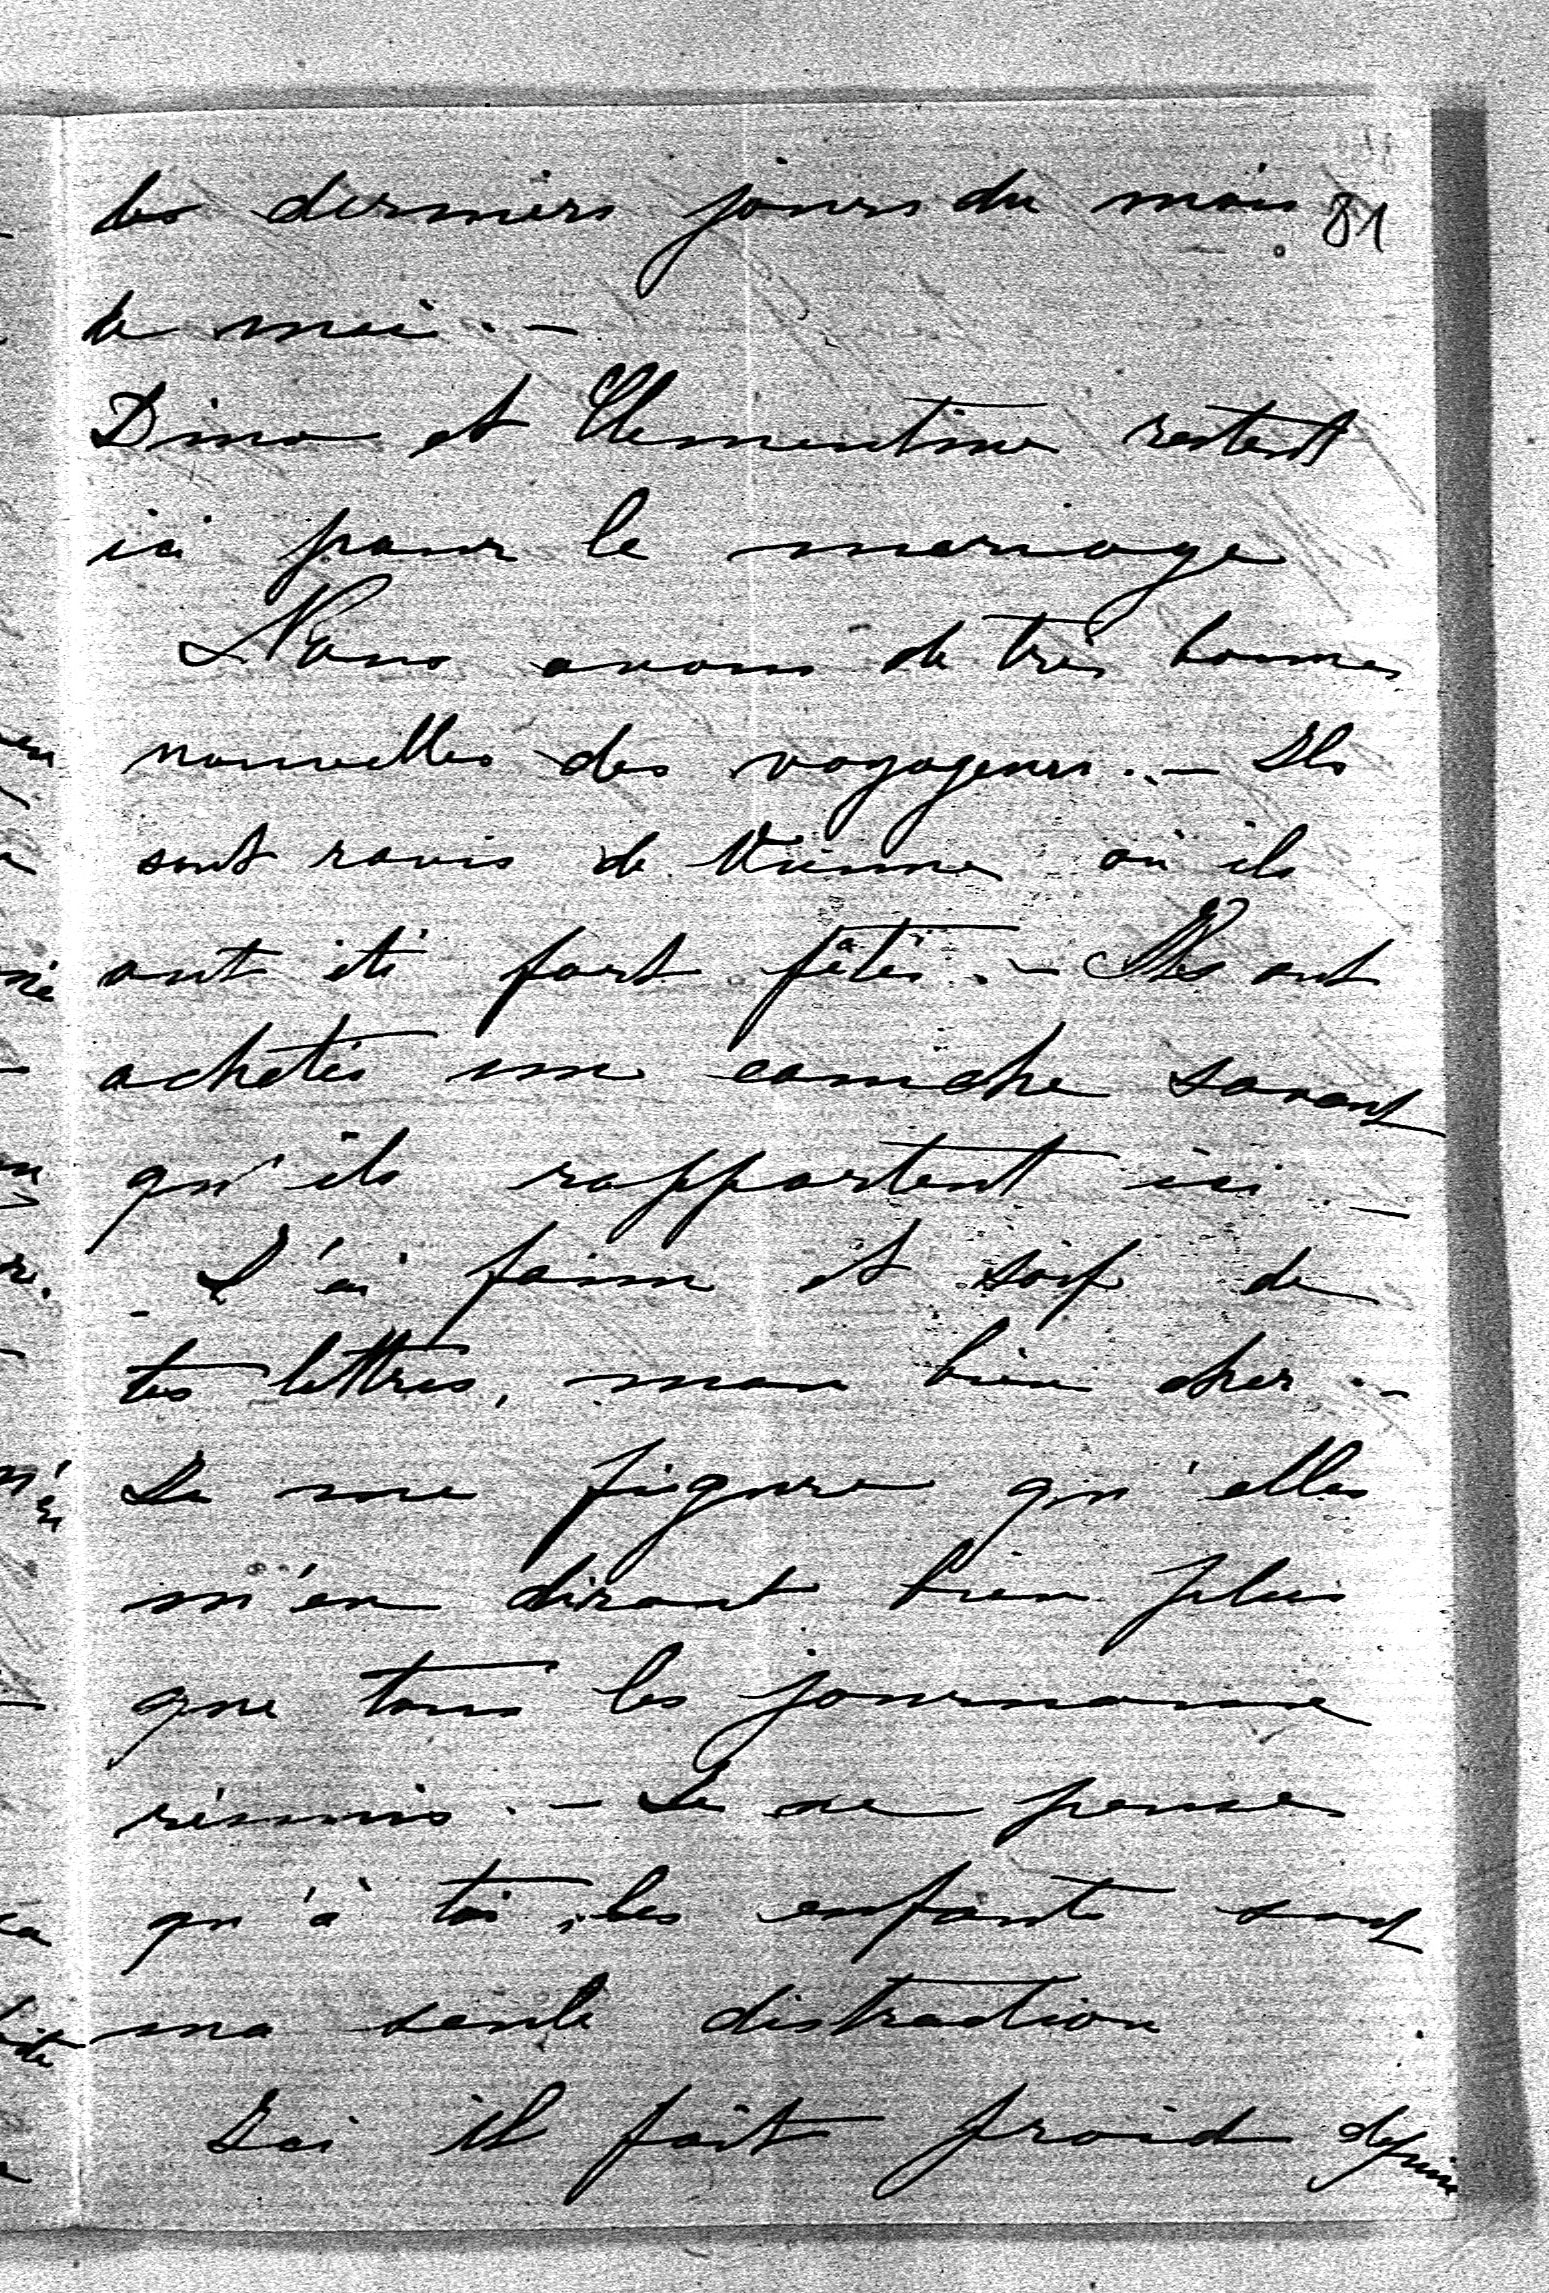 les derniers jours du mois 81
de mai. —
Dino et Clementine restent
ici pour le mariage
Nous avons de très bonnes
nouvelles des voyageurs. — Ils
sont ravis de Vienne où ils
ont été fort fêtés. — Ils ont
achetés un caniche savant
qu'ils rapportent ici. —
J'ai faim et soif de
tes lettres, mon bien cher. —
Je me figure qu'elles
m'en diront bien plus
que tous les journaux
réunis. — Je ne pense
qu'à toi, les enfants sont
ma seule distraction
Ici il fait froid depuis